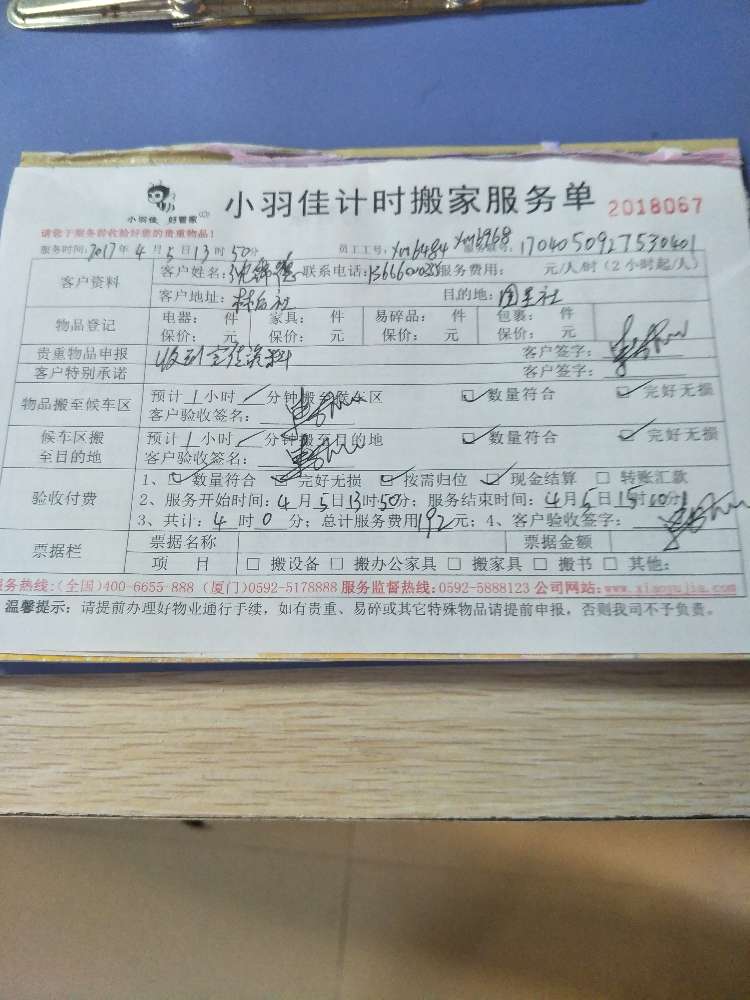 小羽佳 好管家
小羽佳计时搬家服务单 2018067
请您于服务前收验好您的贵重物品!
服务时间:2017年4月5日13时50分 员工工号:xm6484 xm6968 1704050927530401
客户资料 客户姓名: 联系电话: 服务费用: 元/人/时(2小时起/人)
客户地址:林后社 目的地:围里社
物品登记 电器: 件 家具: 件 易碎品: 件 包裹: 件
保价: 元 保价: 元 保价: 元 保价: 元
贵重物品申报 收到 客户签字:
客户特别承诺 客户签字:
物品搬至候车区 预计1小时 分钟搬至候车区 ☑数量符合 ☑完好无损
客户验收签名:
候车区搬至目的地 预计1小时 分钟搬至目的地 ☑数量符合 ☑完好无损
客户验收签名:
验收付费 1、☑数量符合 ☑完好无损 ☑按需归位 ☑现金结算 □转账汇款
2、服务开始时间:4月5日13时50分;服务结束时间:4月5日15时 分;
3、共计:4时0分;总计服务费用192元;4、客户验收签字:
票据栏 票据名称 票据金额
项 目 □搬设备 □搬办公家具 □搬家具 □搬书 □其他:
服务热线:(全国)400-6655-888 (厦门)0592-5178888 服务监督热线:0592-5888123 公司网站:www.xiaoyujia.com
温馨提示:请提前办理好物业通行手续,如有贵重、易碎或其它特殊物品请提前申报,否则我司不予负责。